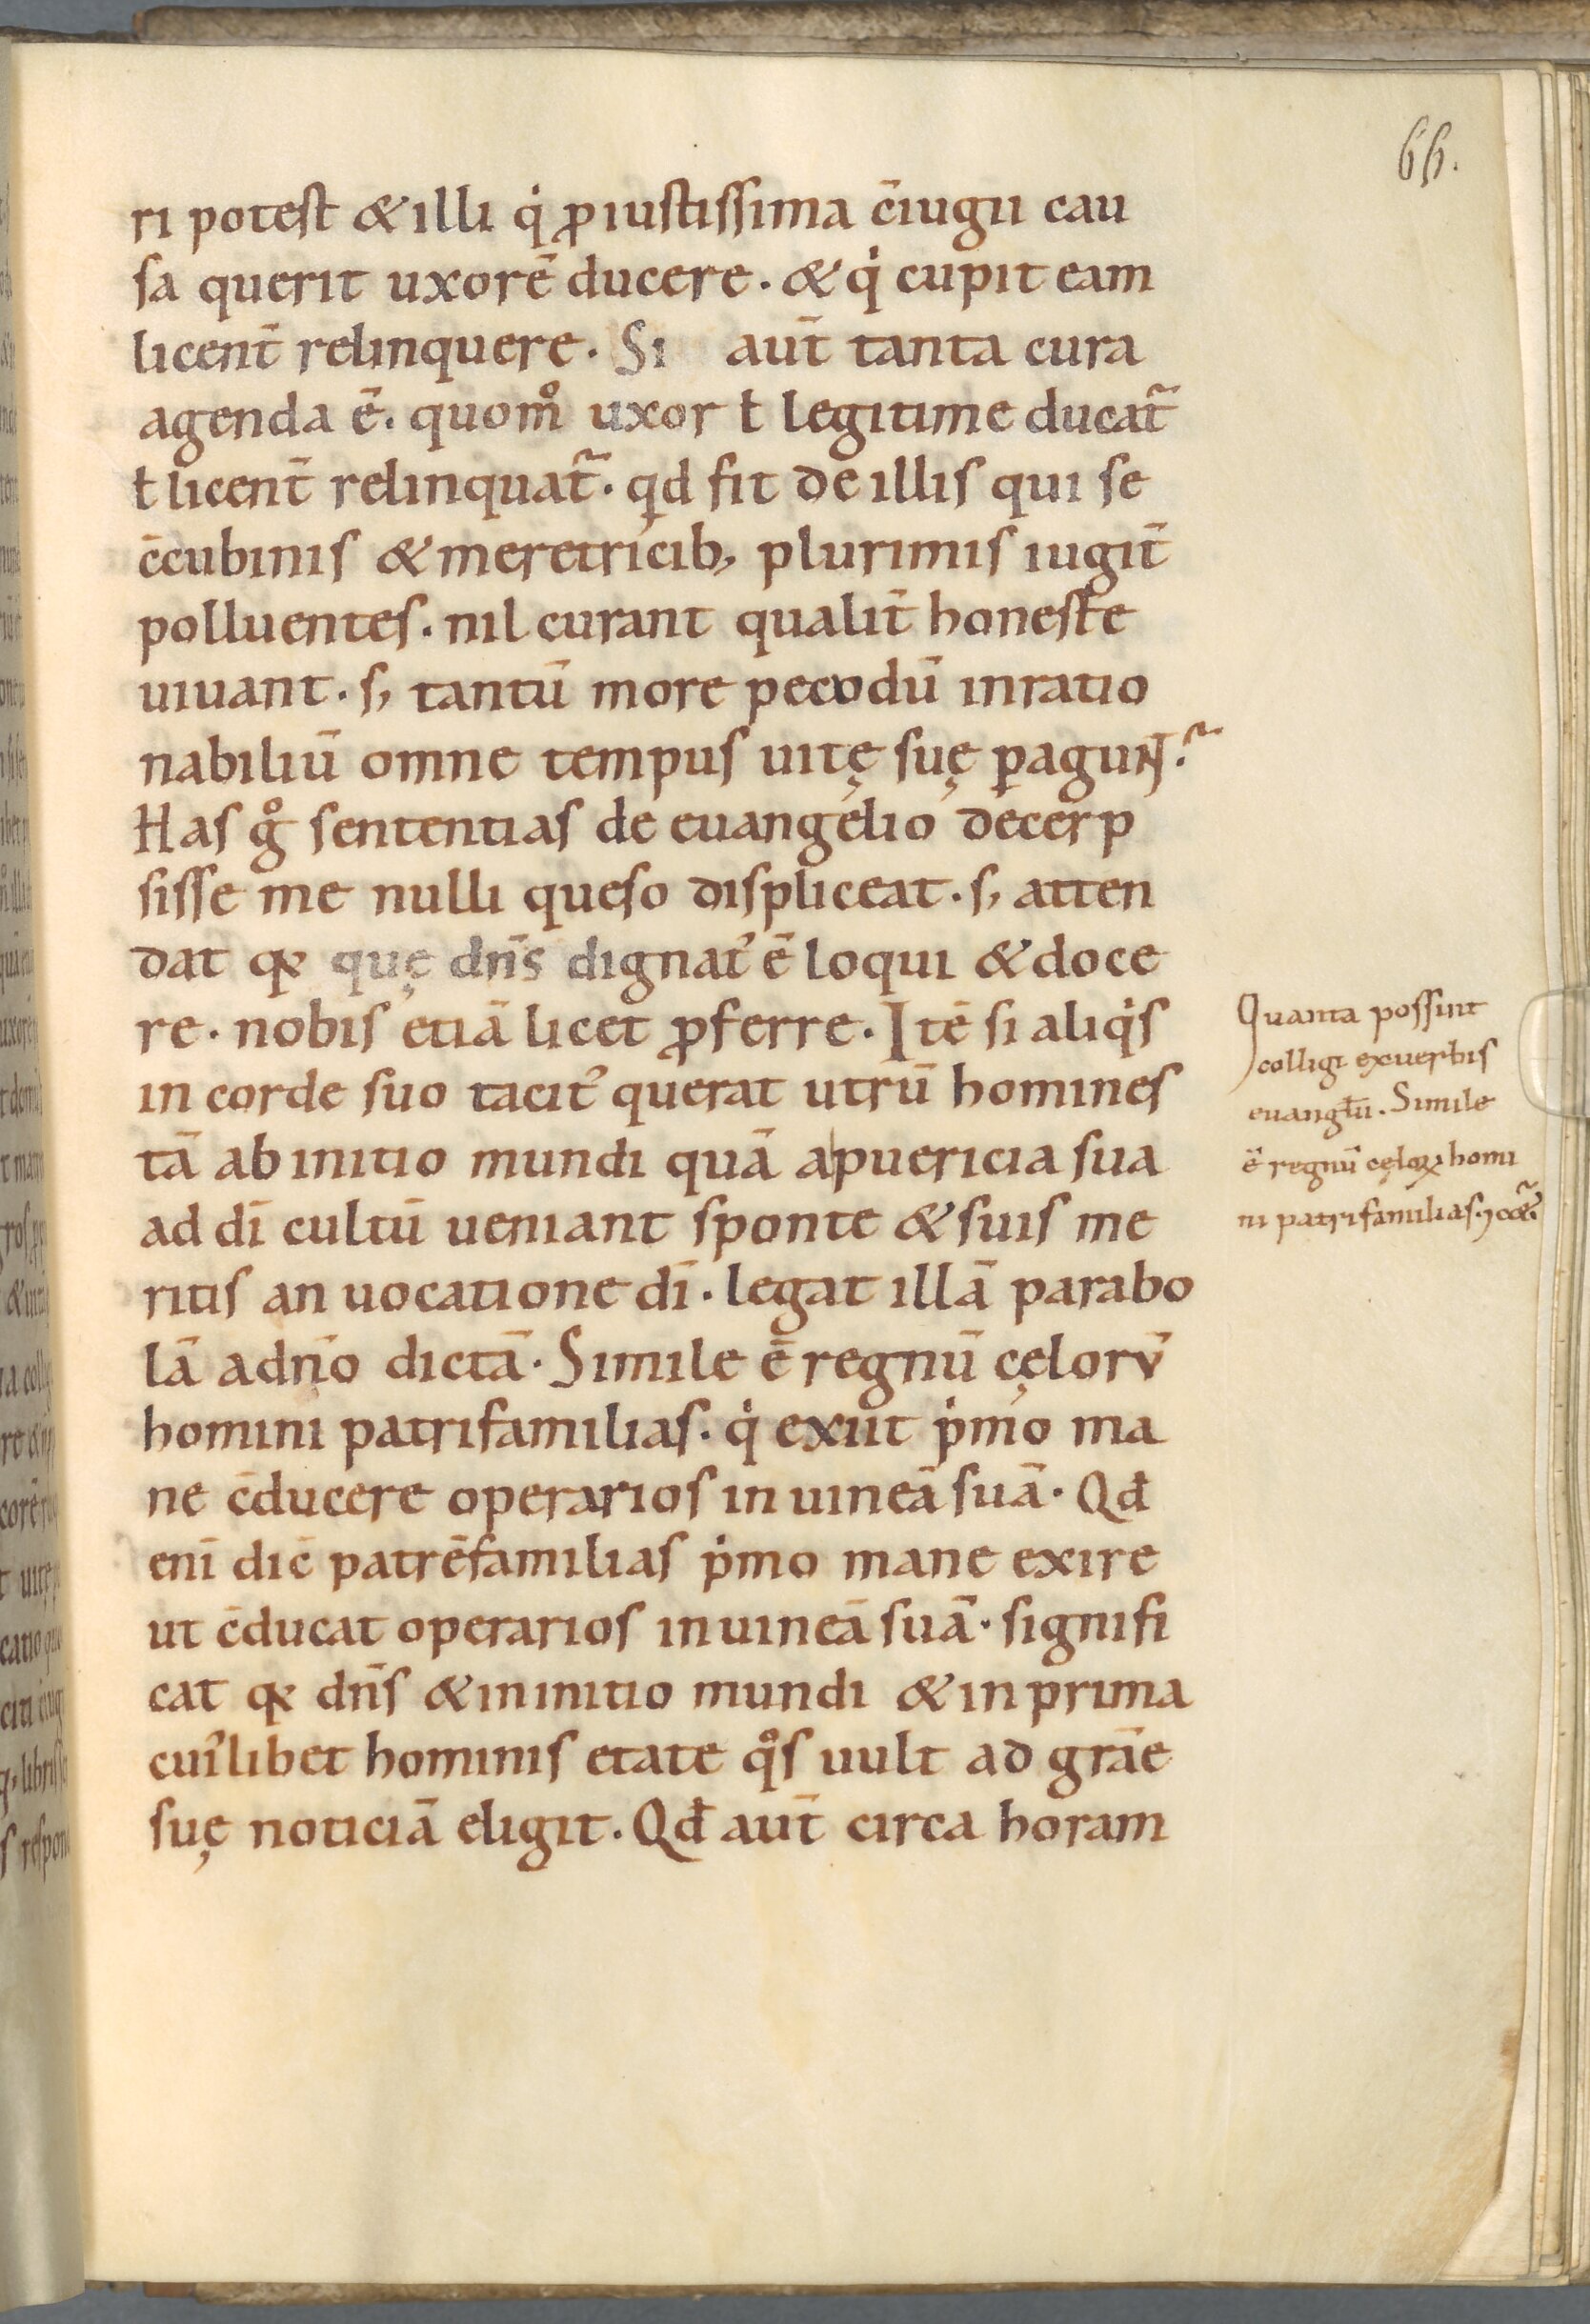 66.
ri potest & illi q̇ ꝓ iustissima c̄iugii cau
sa querit uxorē ducere. & q̇ cupit eam
licent̄ relinquere. Si aut̄ tanta cura
agenda ē. quom̊ uxor ƚ legitime ducat᷑
ƚ licent̄ relinquat᷑. qd fit de illis qui se
c̄cubinis & meretricib; plurimis iugit̄
polluentes. nil curant qualit̄ honeste
uiuant. s; tantū more pecudū inratio
nabiliū omne tempus uitę suę ꝑagunt?
Has g̊ sententias de euangelio decerp
sisse me nulli queso displiceat. s; atten
dat qꝛ quę dn̄s dignat᷑ ē loqui & doce
re. nobis etiā licet ꝓferre. Itē si aliq̇s
in corde suo tacit᷑ querat utrū homines
tā ab initio mundi quā a puericia sua
ad dī cultū ueniant sponte & suis me
ritis an uocatione dī. legat illā parabo
lā a dn̄o dictā. Simile ē regnū cęlorū
homini patrifamilias. q̇ exiit ṗmo ma
ne c̄ducere operarios in uineā suā. Qđ
enī dic̄ patrēfamilias ṗmo mane exire
ut c̄ducat operarios in uineā suā. signifi
cat qꝛ dn̄s & in initio mundi & in prima
cui᷑libet hominis etate q̊s uult ad grāe
suę noticiā eligit. Qđ aut̄ circa horam
Quanta possint
colligi ex uerbis
euangłīū. Simile
ē regnū cęloꝝ homi
ni patrifamilias. ⁊ cęt᷑.